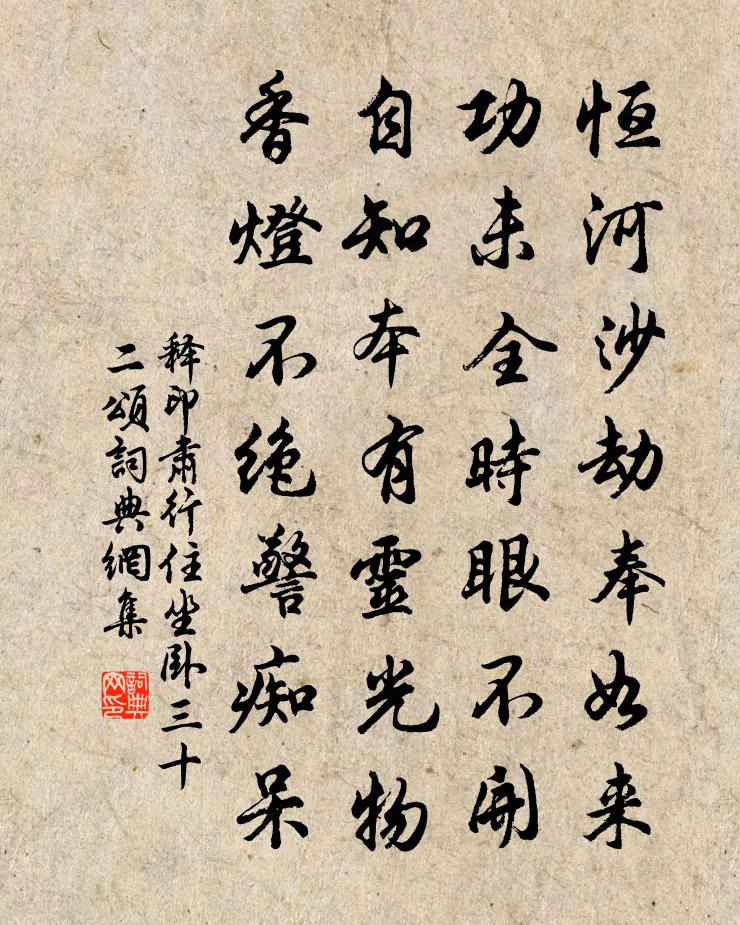 恒河沙劫奉如来
功未全時眼不開
自知本有靈光物
香燈不绝警痴呆
释印肃行住坐卧三十
二頌詞典網集
詞典
网印